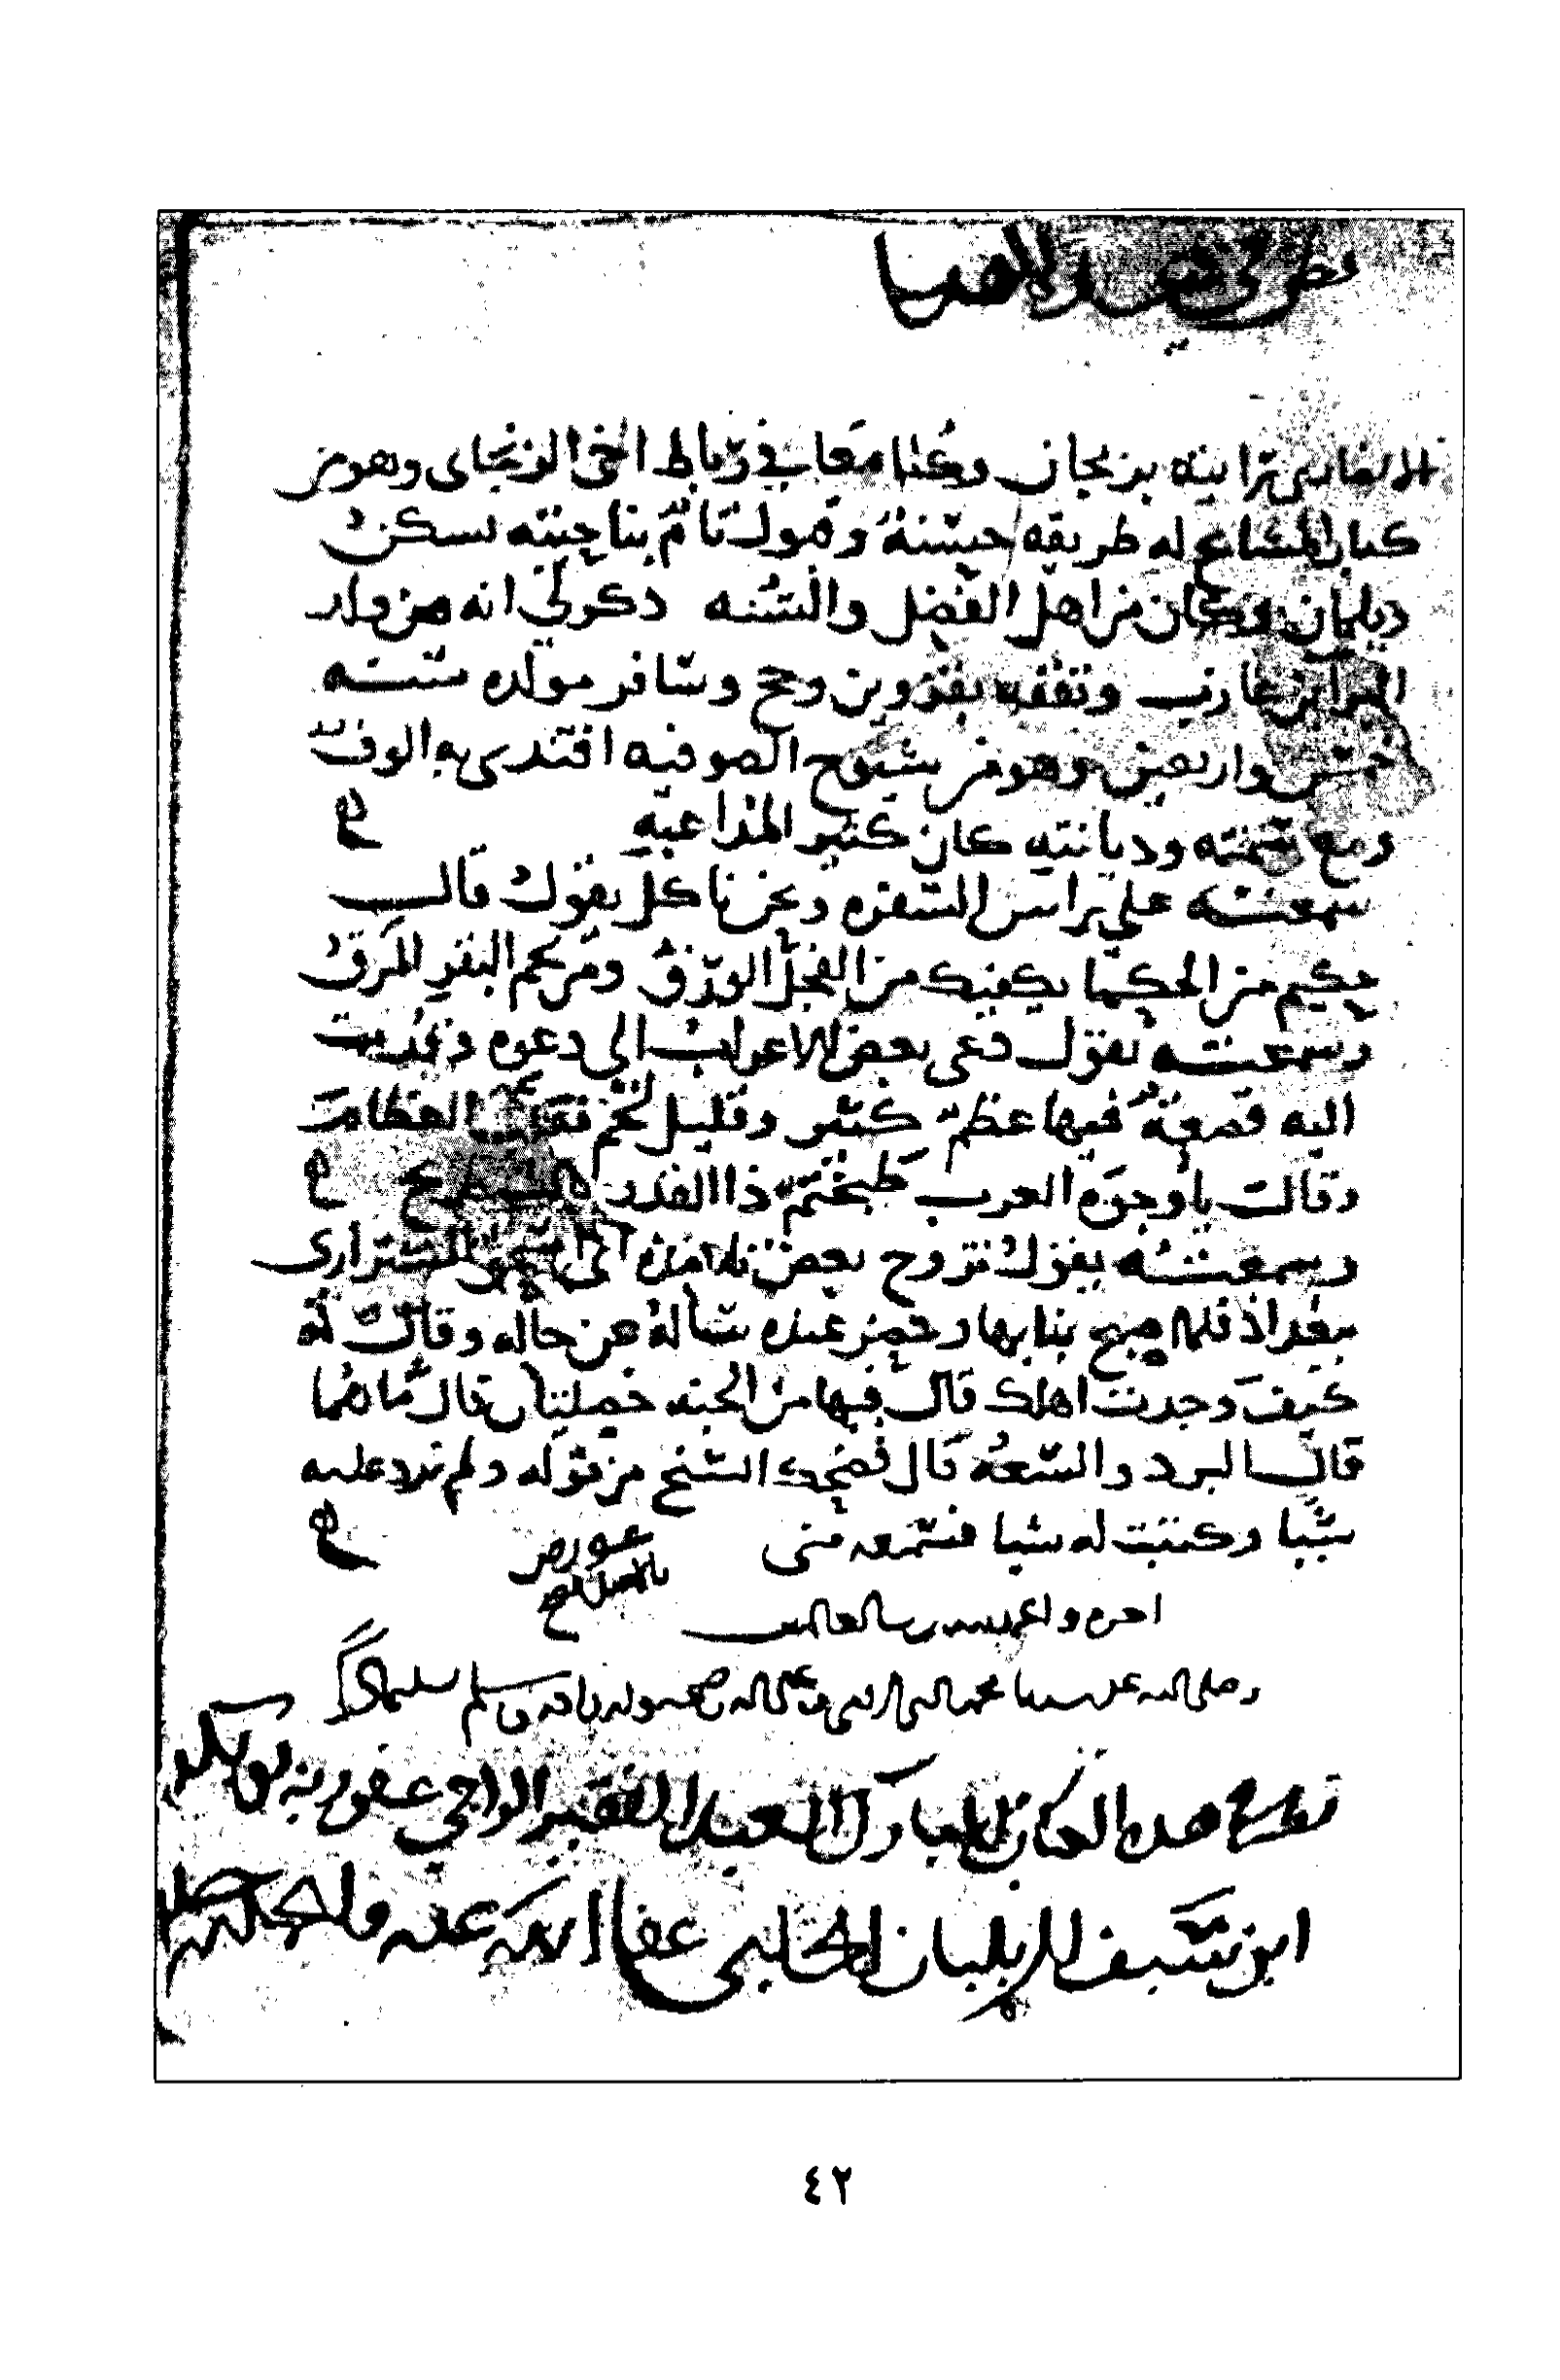 نظر في
الانصاري رايته بزنجان وكنا معا في رباط اخي الزنجاني وهو من
كبار المشايخ له طريقه حسنة وقبول تام بناحيته يسكن
ديلمان وكان من اهل الفضل والسنه ذكر لي انه من ولد
البرا بن عازب وتفقه بقزوين وحج وسافر مولده سنه
خمس واربعين وهو من شيوخ الصوفيه اقتدى به الوف
ومع سمته وديانته كان كثير المداعبه
سمعته على راس السفره ونحن ناكل يقول قال
حكيم من الحكما يكفيك من الفجل الورق ومن لحم البقر المرق
وسمعته يقول دعي بعض الاعراب الى دعوه وقدمت
اليه قصعة فيها عظم كثير وقليل لحم العظام
وقالت يا وجوه العرب طبختم ذا القدر
وسمعته يقول تزوج بعض تلامذه ابي اسحق الشيرازي
ببغداذ فلما اصبح بنا بها وحضر عنده سأله عن حاله وقال له
كيف وجدت اهلك قال فيها من الجنه خصلتان قال ما هما
قال البرد والسعه قال فضحك الشيخ من قوله ولم يرد عليه
شيا وكتبت له شيا فسمعه مني
عورض
بالاصل فصح
اخره والحمد لله رب العالمين
وصلى الله على سيدنا محمد النبي الامي وعلى اله وصحبه وسلم تسليما
هذه المبارك العبد الفقير الراجي عفو ربه
ابن بلبان الحنبلي عفا الله عنه
٤٢